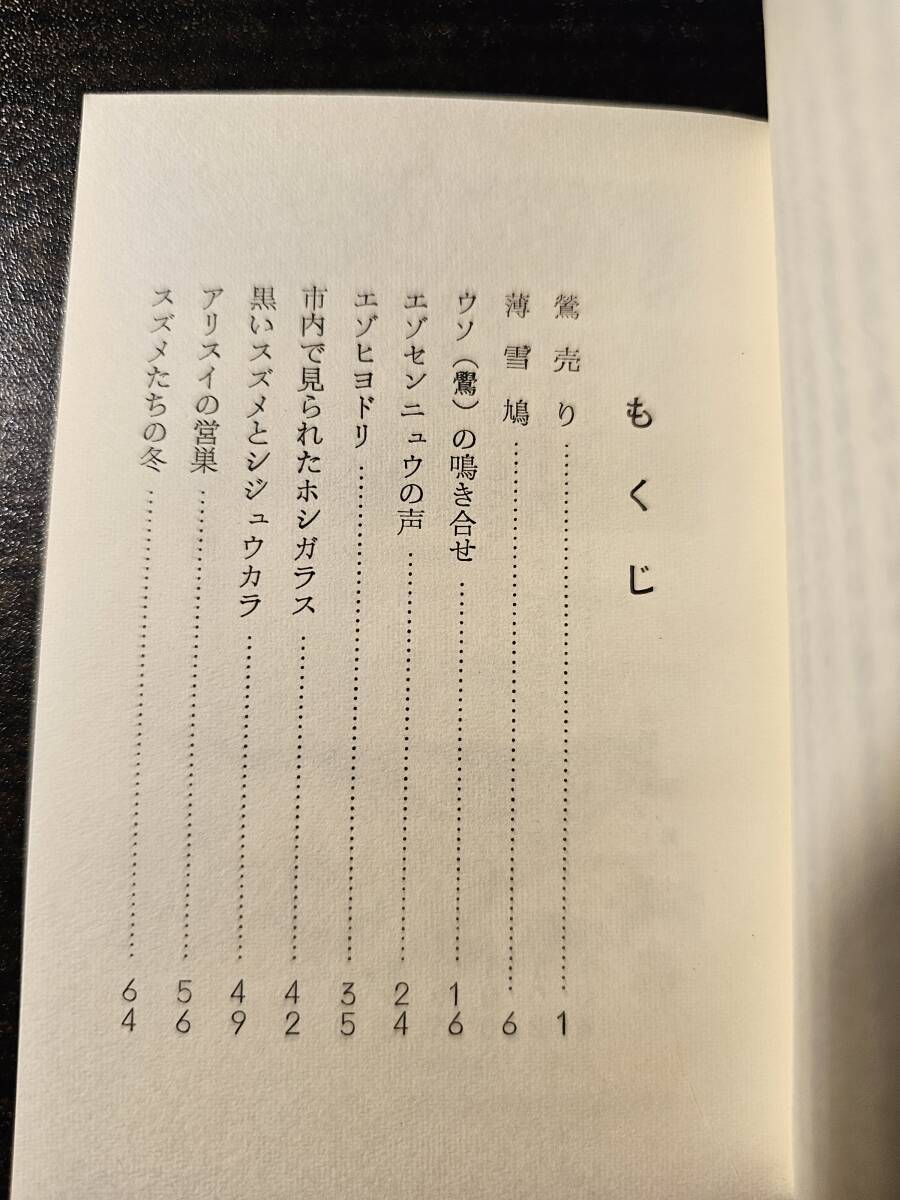 もくじ
鶯売り……………………1
薄雪鳩……………………6
ウソ（鷽）の鳴き合せ……………………16
エゾセンニュウの声……………………24
エゾヒヨドリ……………………35
市内で見られたホシガラス……………………42
黒いスズメとシジュウカラ……………………49
アリスイの営巣……………………56
スズメたちの冬……………………64